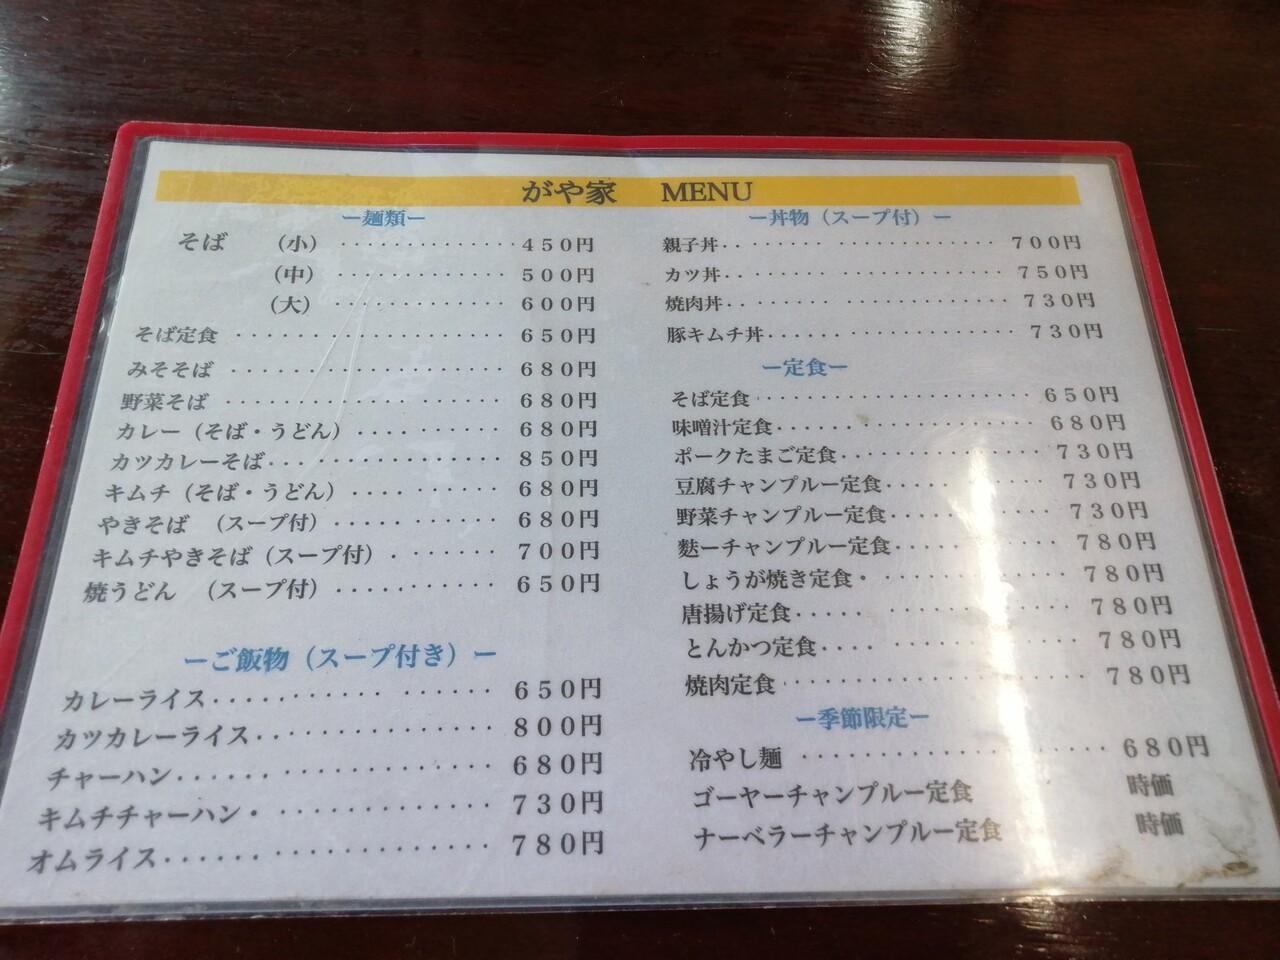 がや家 MENU
ー麺類ー
そば (小) ・・・・・・・・・・・・・・ 450円
(中) ・・・・・・・・・・・・・・ 500円
(大) ・・・・・・・・・・・・・・ 600円
そば定食 ・・・・・・・・・・・・・・ 650円
みそそば ・・・・・・・・・・・・・・ 680円
野菜そば ・・・・・・・・・・・・・・ 680円
カレー(そば・うどん) ・・・・・・・・・・ 680円
カツカレーそば・・・・・・・・・・・・・・ 850円
キムチ(そば・うどん) ・・・・・・・・・・ 680円
やきそば (スープ付) ・・・・・・・・・・ 680円
キムチやきそば(スープ付) ・・・・・・・・ 700円
焼うどん (スープ付) ・・・・・・・・・・ 650円
ーご飯物(スープ付き)ー
カレーライス・・・・・・・・・・・・・・ 650円
カツカレーライス・・・・・・・・・・・・ 800円
チャーハン・・・・・・・・・・・・・・・ 680円
キムチチャーハン・・・・・・・・・・・・ 730円
オムライス・・・・・・・・・・・・・・・ 780円
ー丼物(スープ付)ー
親子丼・・・・・・・・・・・・・・・・ 700円
カツ丼・・・・・・・・・・・・・・・・ 750円
焼肉丼・・・・・・・・・・・・・・・・ 730円
豚キムチ丼・・・・・・・・・・・・・・ 730円
ー定食ー
そば定食・・・・・・・・・・・・・・・ 650円
味噌汁定食・・・・・・・・・・・・・・ 680円
ポークたまご定食・・・・・・・・・・・ 730円
豆腐チャンプルー定食・・・・・・・・・ 730円
野菜チャンプルー定食・・・・・・・・・ 730円
麩ーチャンプルー定食・・・・・・・・・ 780円
しょうが焼き定食・・・・・・・・・・・ 780円
唐揚げ定食・・・・・・・・・・・・・・ 780円
とんかつ定食・・・・・・・・・・・・・ 780円
焼肉定食・・・・・・・・・・・・・・・ 780円
ー季節限定ー
冷やし麺 ・・・・・・・・・・・・・・ 680円
ゴーヤーチャンプルー定食 時価
ナーベラーチャンプルー定食 時価